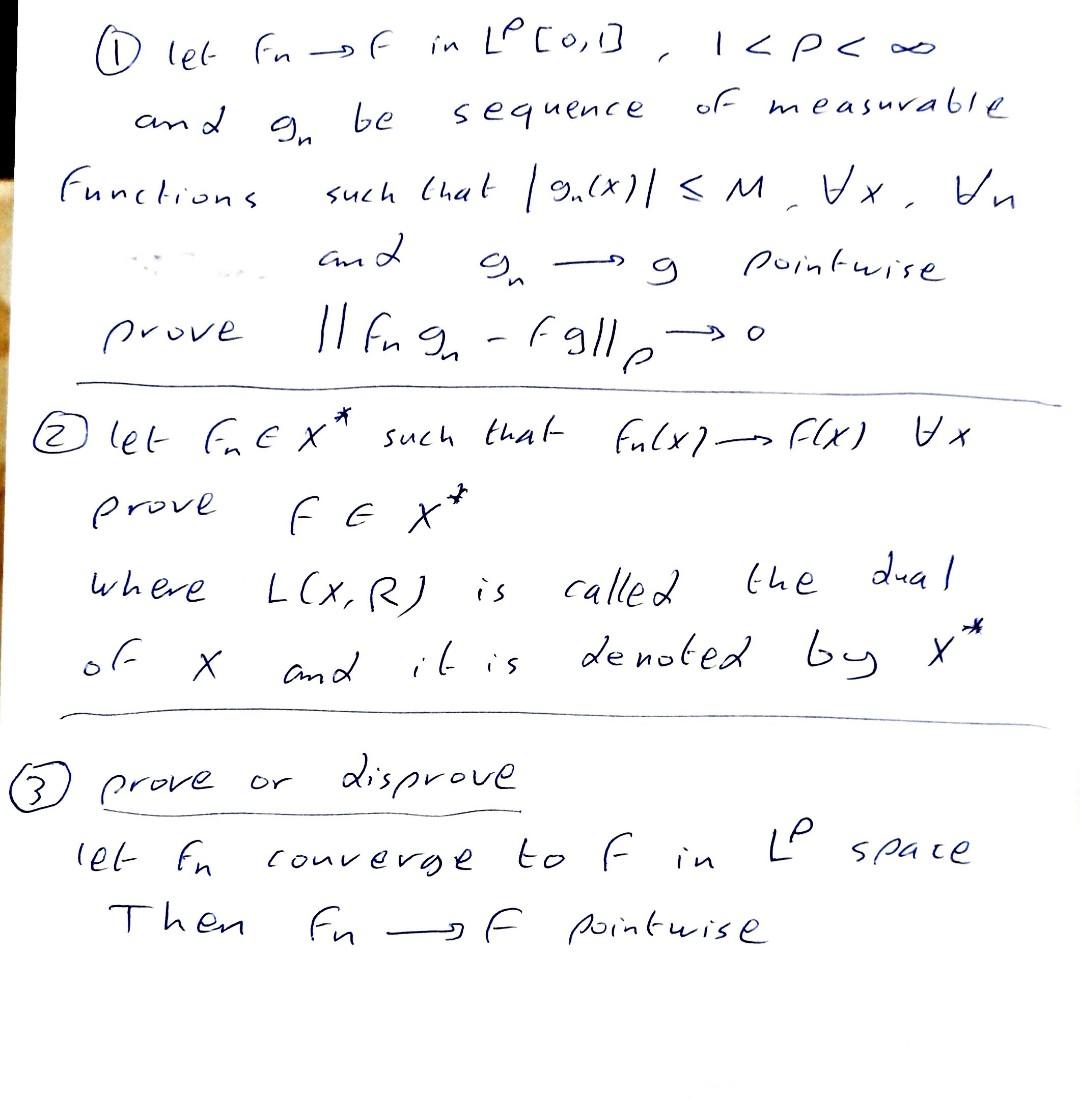 ① let fn → f in L^p [0,1] , 1 < p < ∞
and gn be sequence of measurable
functions such that |gn(x)| ≤ M, ∀x, ∀n
and gn → g pointwise
prove ||fn gn - fg||p → 0
② let fn ∈ X* such that fn(x) → f(x) ∀x
prove f ∈ X*
where L(X, R) is called the dual
of X and it is denoted by X*
③ prove or disprove
let fn converge to f in L^p space
Then fn → f pointwise